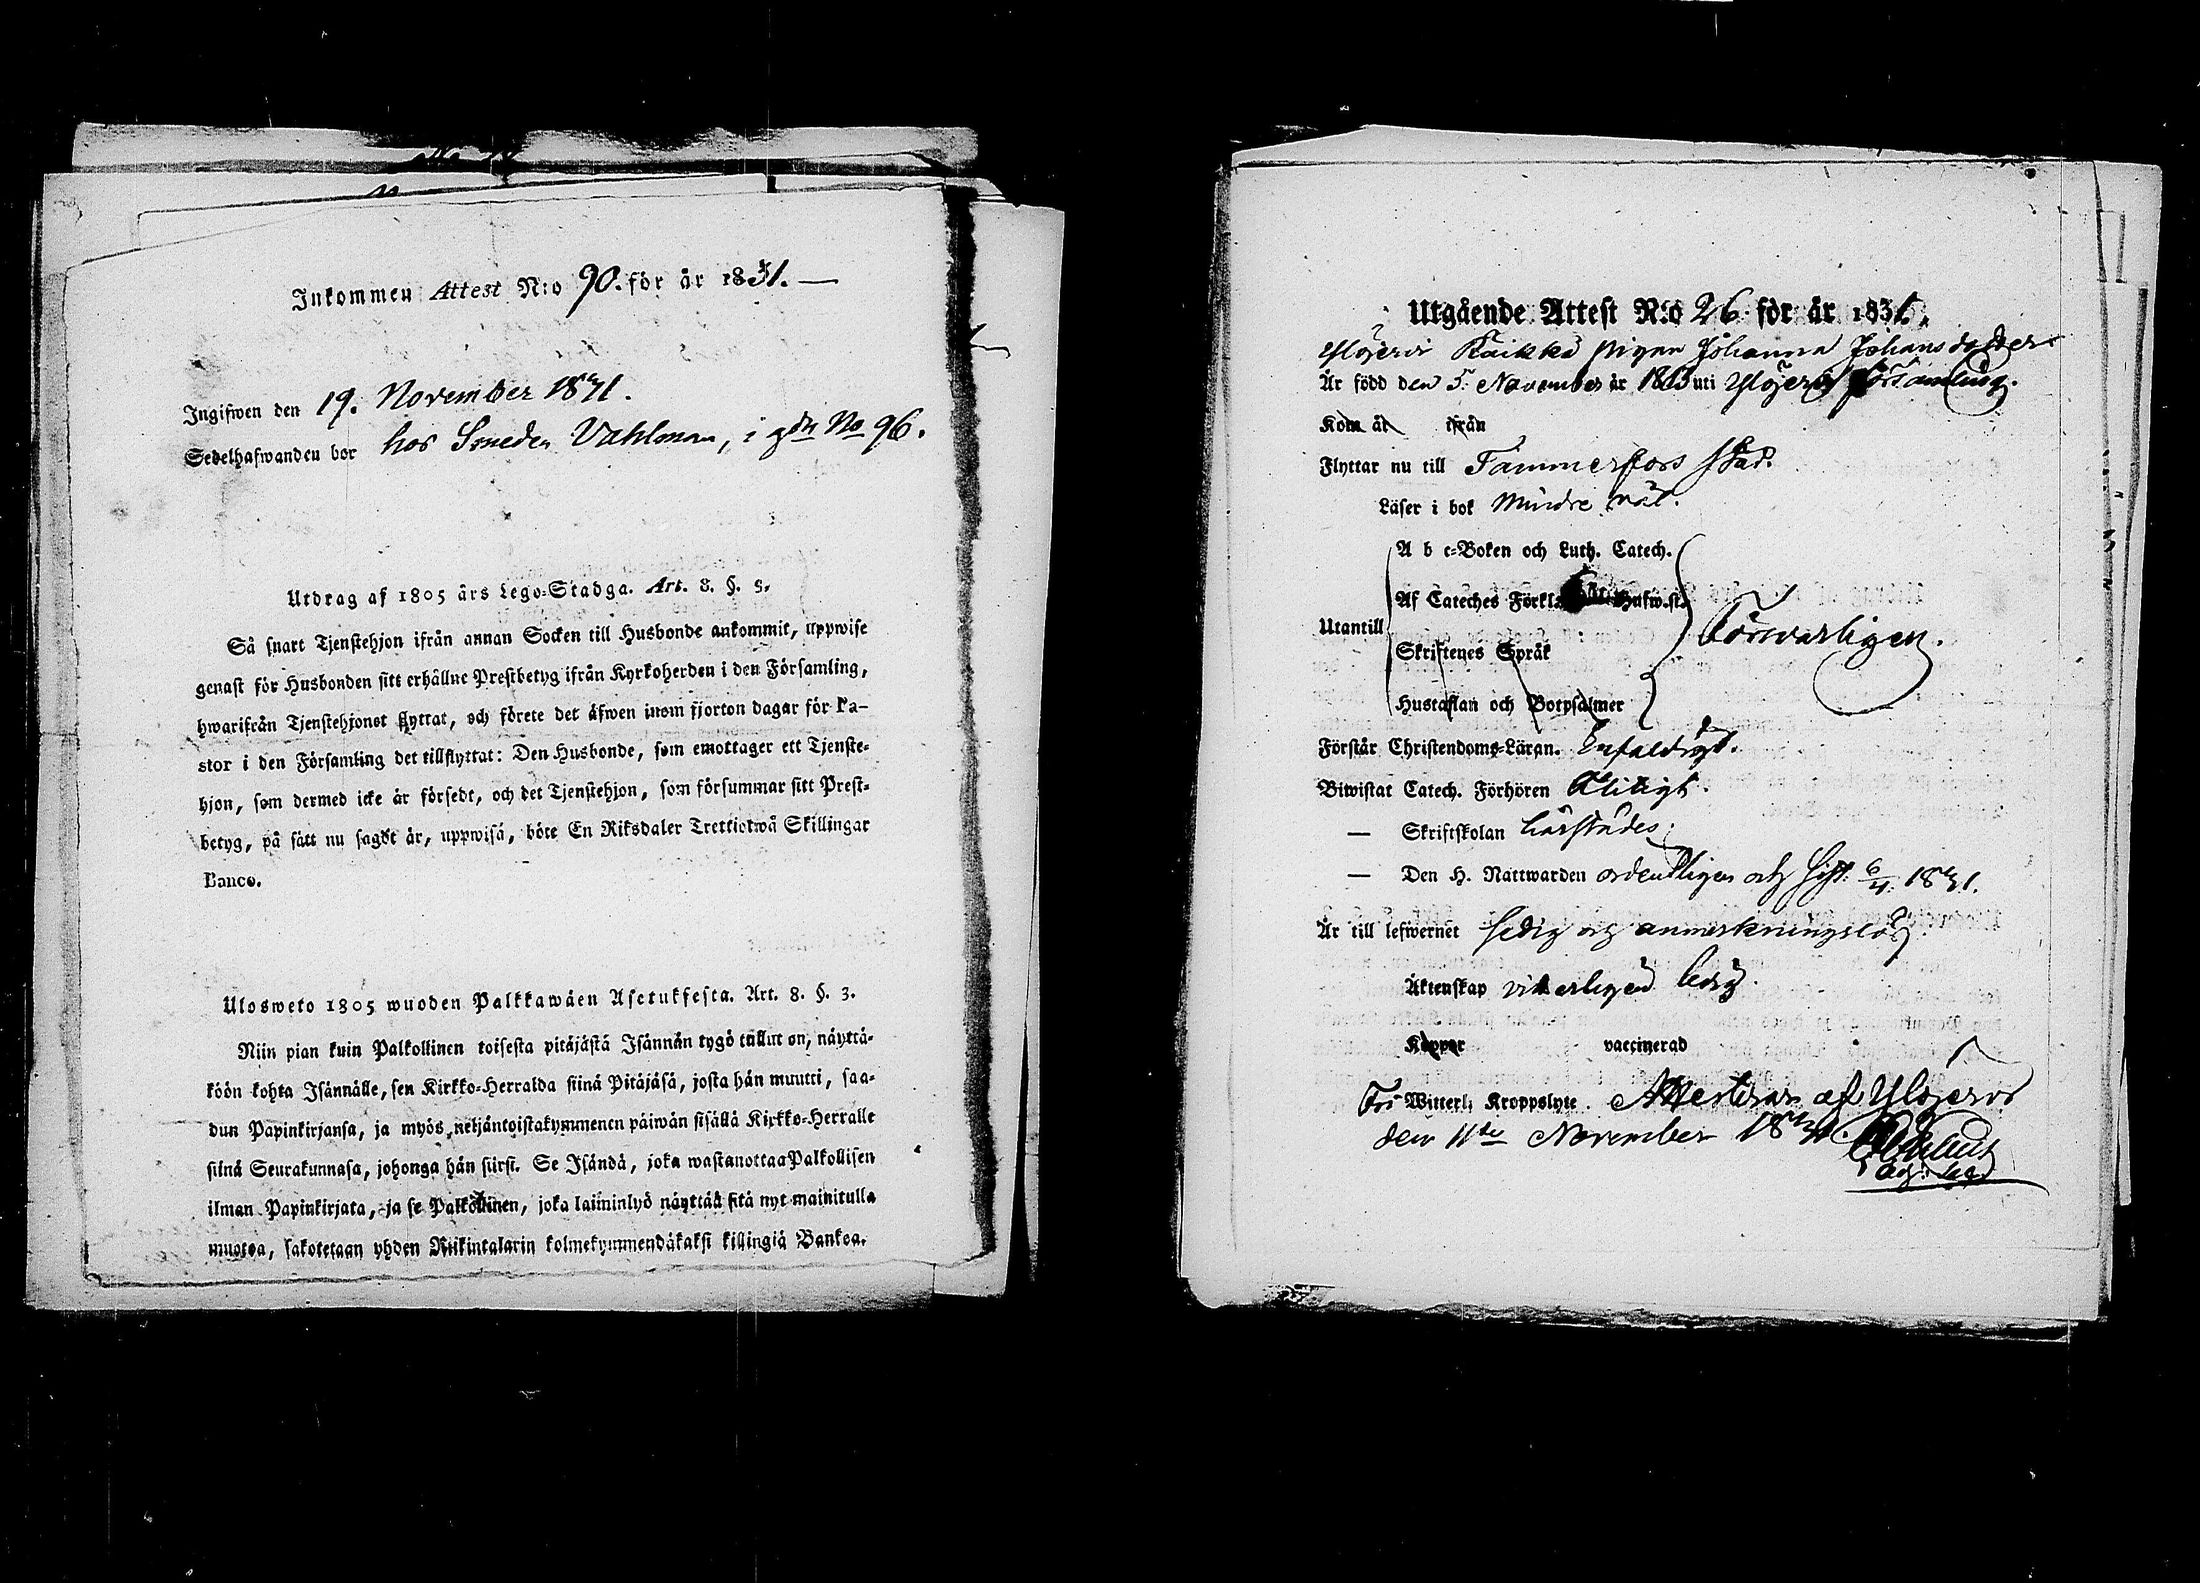 Inkommen Attest N:o 90. för år 1841. —
Ingifwen den 19. November 1841.
Sedelhafwanden bor hos Smeden Vahlman, i gdn No 96.
Utdrag af 1805 års Lego-Stadga. Art. 8. §. 3.
Så snart Tjenstehjon ifrån annan Socken till Husbonde ankommit, uppwise
genast för Husbonden sitt erhållne Prestbetyg ifrån Kyrkoherden i den Församling,
hwarifrån Tjenstehjonet flyttat, och förete det äfwen inom fjorton dagar för Pa-
stor i den Församling det tillflyttat: Den Husbonde, som emottager ett Tjenste-
hjon, som dermed icke är försedt, och det Tjenstehjon, som försummar sitt Prest-
betyg, på sätt nu sagdt är, uppwisa, böte En Riksdaler Trettiotwå Skillingar
Banco.
Ulosweto 1805 wuoden Palkkawäen Asetuksesta. Art. 8. §. 3.
Niin pian kuin Palkollinen toisesta pitäjästä Isännän tygö tullut on, näyttä-
köön kohta Isännälle, sen Kirkko-Herralda siinä Pitäjäsä, josta hän muutti, saa-
dun Papinkirjansa, ja myös neljäntoistakymmenen päiwän sisällä Kirkko-Herralle
siinä Seurakunnasa, johonga hän siirsi. Se Isändä, joka wastanottaa Palkollisen
ilman Papinkirjata, ja se Palkollinen, joka laiminlyö näyttää sitä nyt mainitulla
muotoa, sakotetaan yhden Riikintalarin kolmekymmendäkaksi killingiä Bankoa.
Utgående Attest N:o 26 för år 1841.
Ylöjervi Kaikka pigan Johanna Johansdotter
Är född den 5. November år 1813 uti Ylöjervi församling.
Kom år ifrån
Flyttar nu till Tammerfors stad.
Läser i bok mindre väl.
A b c-Boken och Luth. Catech.
Af Cateches Förkl. Hufw.st.
Utantill Försvarligen.
Skriftenes Språk
Hustaflan och Botpsalmer
Förstår Christendoms-Läran. Enfaldigt.
Biwistat Catech. Förhören flitigt.
— Skriftskolan härstädes
— Den H. Nattwarden ordentligen och sist 6/4. 1841.
Är till lefwernet sedig och anmerkningslös
Äktenskap vitterligen ledig.
Koppor vaccinerad
Fri Witterl. Kroppslyte. Attesterar af Ylöjervi
den 11te November 1841.